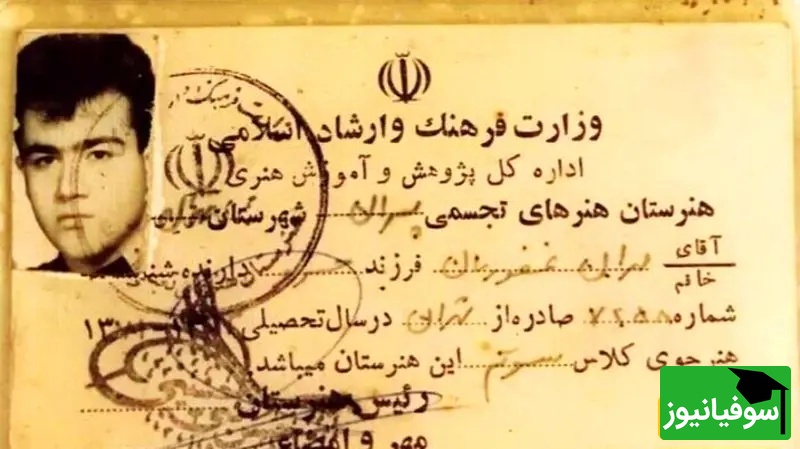 وزارت فرهنگ وارشاد اسلامی
اداره کل پژوهش و آموزش هنری
هنرستان هنرهای تجسمی پسران شهرستان
آقای
خانم
مهران غفوریان فرزند دارنده
شماره صادره از تهران در سال تحصیلی
هنرجوی کلاس سوم این هنرستان میباشد
رئیس هنرستان
مهر و امضاء
سوفیانیوز